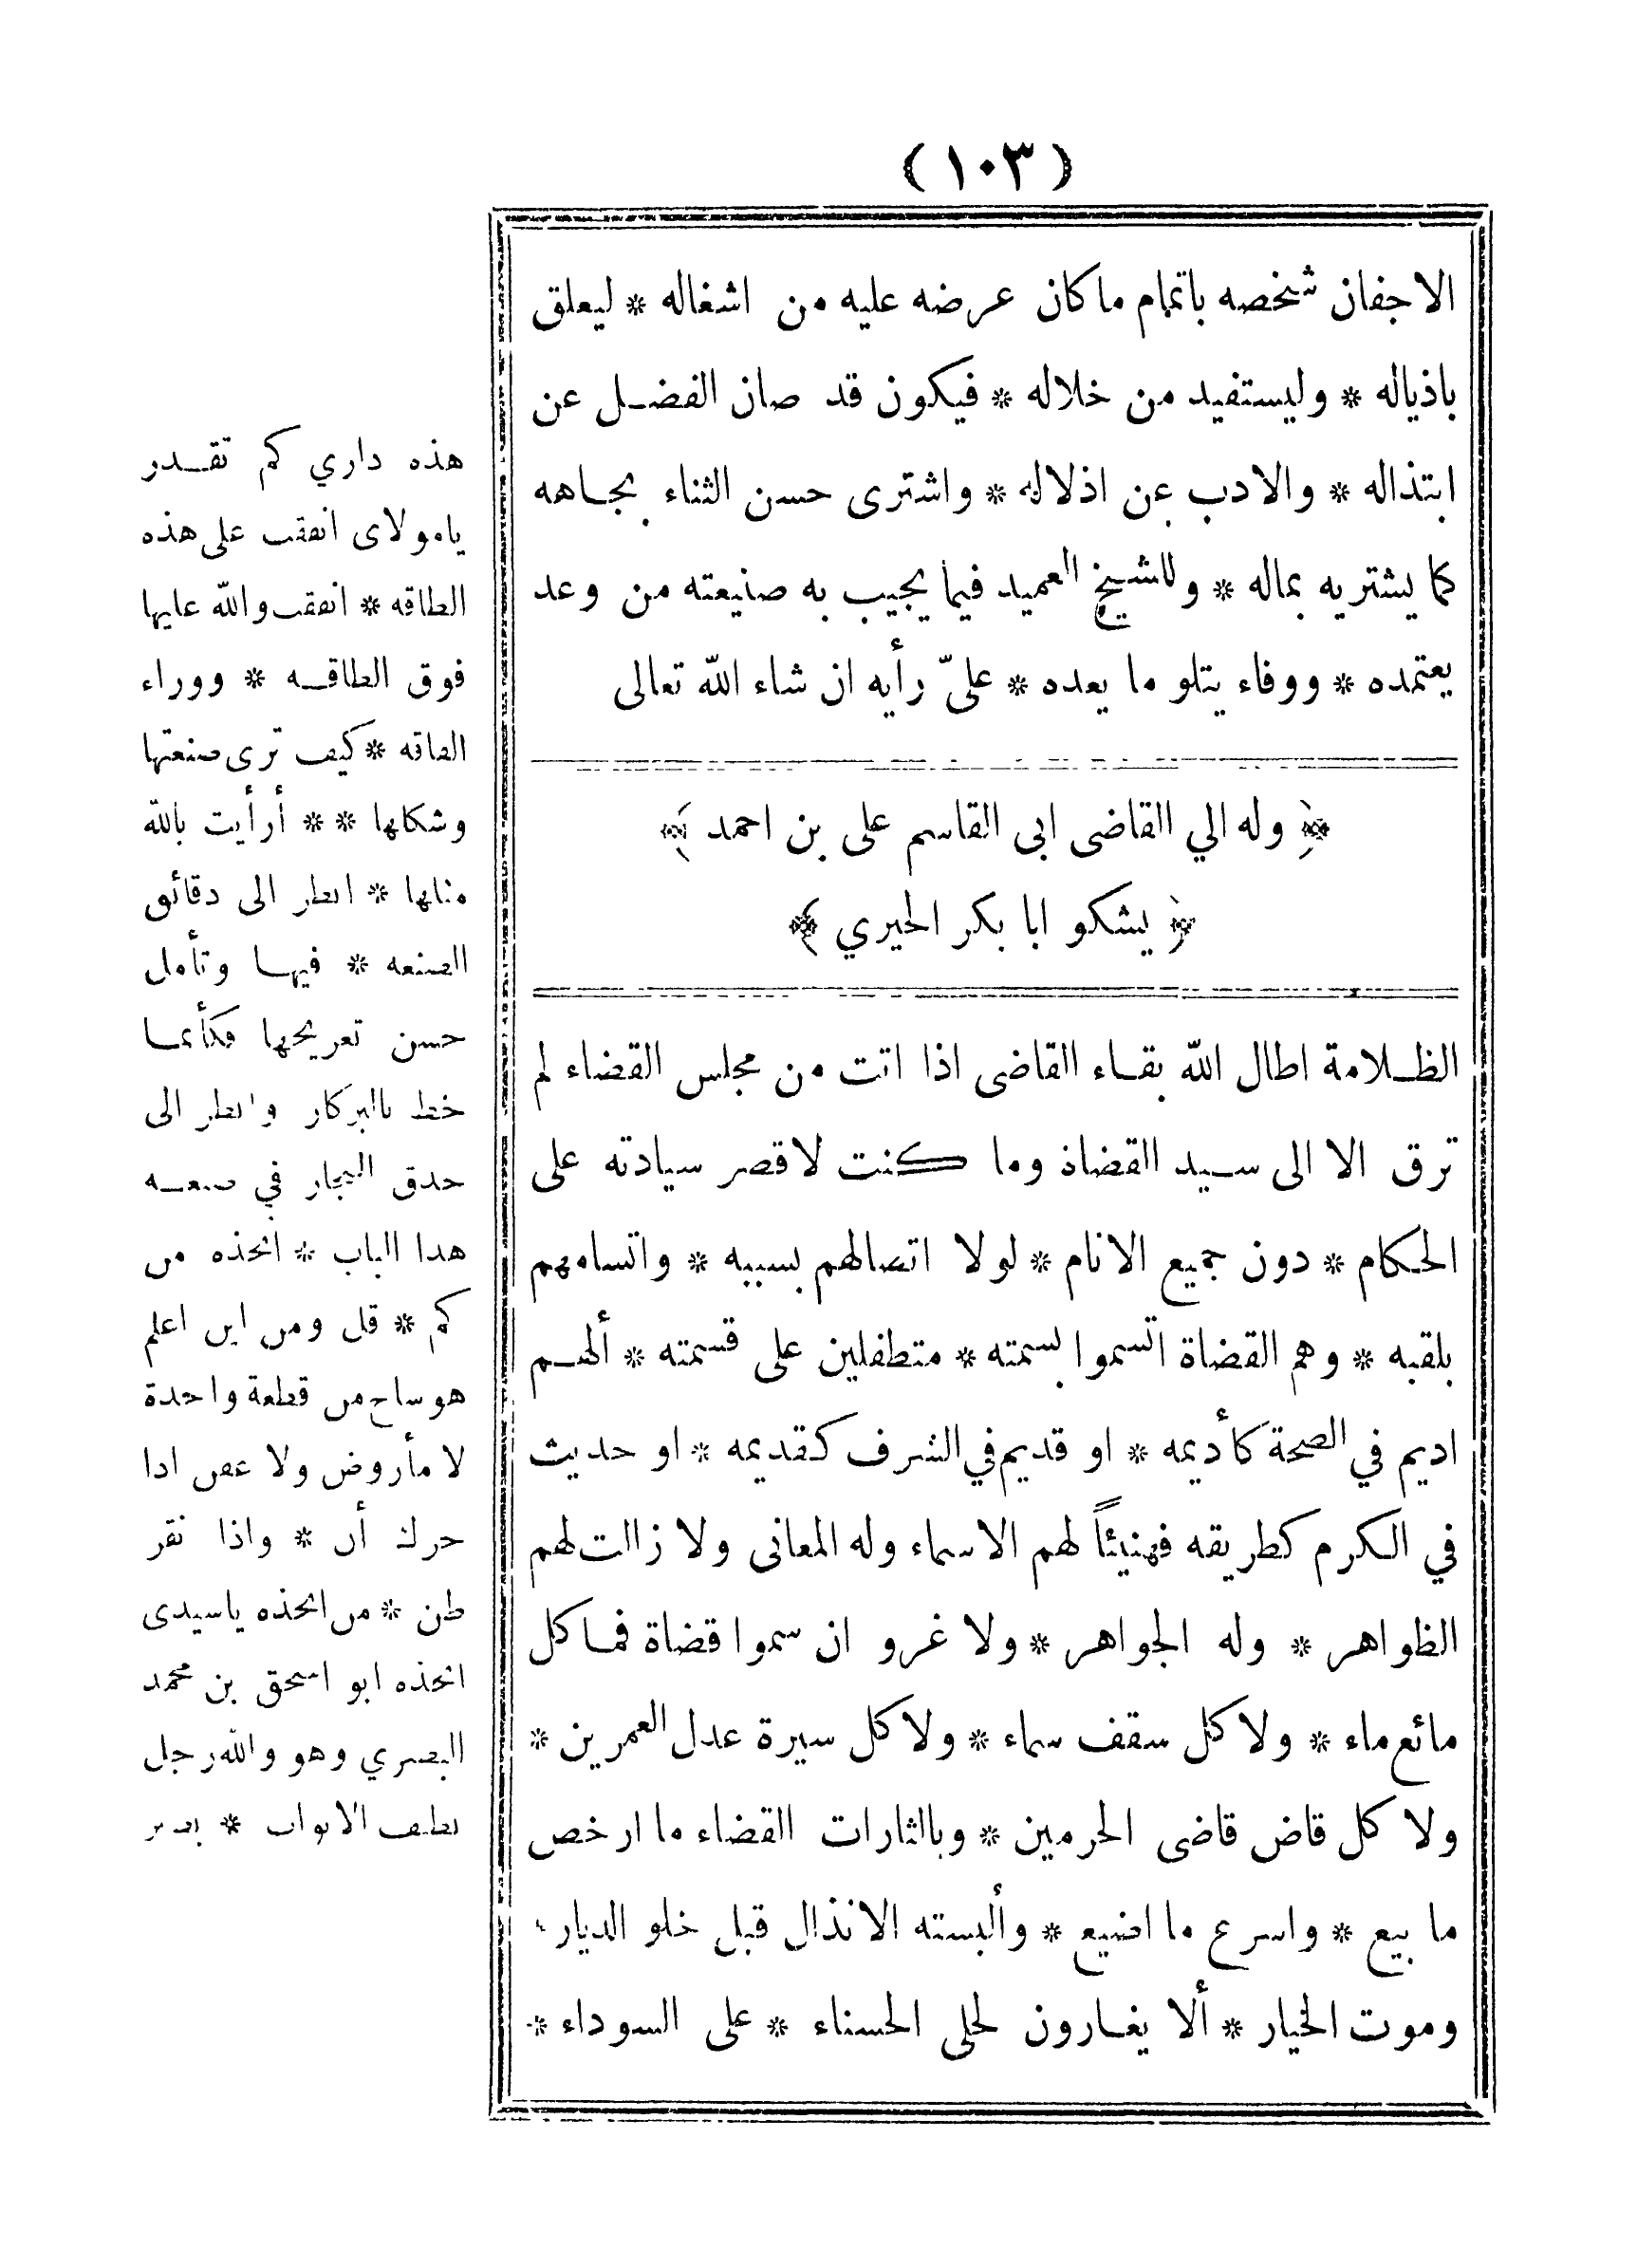 (١٠٣)
الاجفان شخصه باتمام ماكان عرضه عليه من اشغاله * ليعلق
باذياله * وليستفيد من خلاله * فيكون قد صان الفضل عن
ابتذاله * والادب عن اذلاله * واشترى حسن الثناء بجاهه
كما يشتريه بماله * وللشيخ العميد فيما يجيب به صنيعته من وعد
يعتمده * ووفاء يتلو ما يعده * علىّ رأيه ان شاء الله تعالى
﴿ وله الي القاضى ابى القاسم على بن احمد ﴾
﴿ يشكو ابا بكر الحيري ﴾
الظلامة اطال الله بقاء القاضى اذا اتت من مجلس القضاء لم
ترق الا الى سيد القضاة وما كنت لاقصر سيادته على
الحكام * دون جميع الانام * لولا اتصالهم بسببه * واتسامهم
بلقبه * وهم القضاة اتسموا بسمته * متطفلين على قسمته * ألهم
اديم في الصحة كأديمه * او قديم في الشرف كقديمه * او حديث
في الكرم كطريقه فهنيئاً لهم الاسماء وله المعانى ولا زالت لهم
الظواهر * وله الجواهر * ولا غرو ان سموا قضاة فما كل
مائع ماء * ولا كل سقف سماء * ولا كل سيرة عدل العمرين *
ولا كل قاض قاضى الحرمين * وبالثارات القضاء ما ارخص
ما بيع * واسرع ما اضيع * وألبسته الانذال قبل خلو الديار
وموت الخيار * ألا يغارون لحلى الحسناء * على السوداء *
هذه داري كم تقدر
يامولاى انفقت على هذه
الطاقه * انفقت والله عليها
فوق الطاقه * ووراء
الفاقه * كيف ترى صنعتها
وشكلها * * أرأيت بالله
مثلها * انظر الى دقائق
الصنعه * فيها وتأمل
حسن تعريجها فكأنما
خط بالبركار وانظر الى
حذق النجار في صنعه
هذا الباب * اتخذه من
كم * قل ومن اين اعلم
هو ساج من قطعة واحدة
لا مأروض ولا عفن اذا
حرك أن * واذا نقر
طن * من اتخذه ياسيدى
اتخذه ابو اسحق بن محمد
البصري وهو والله رجل
نظيف الاثواب * بصير